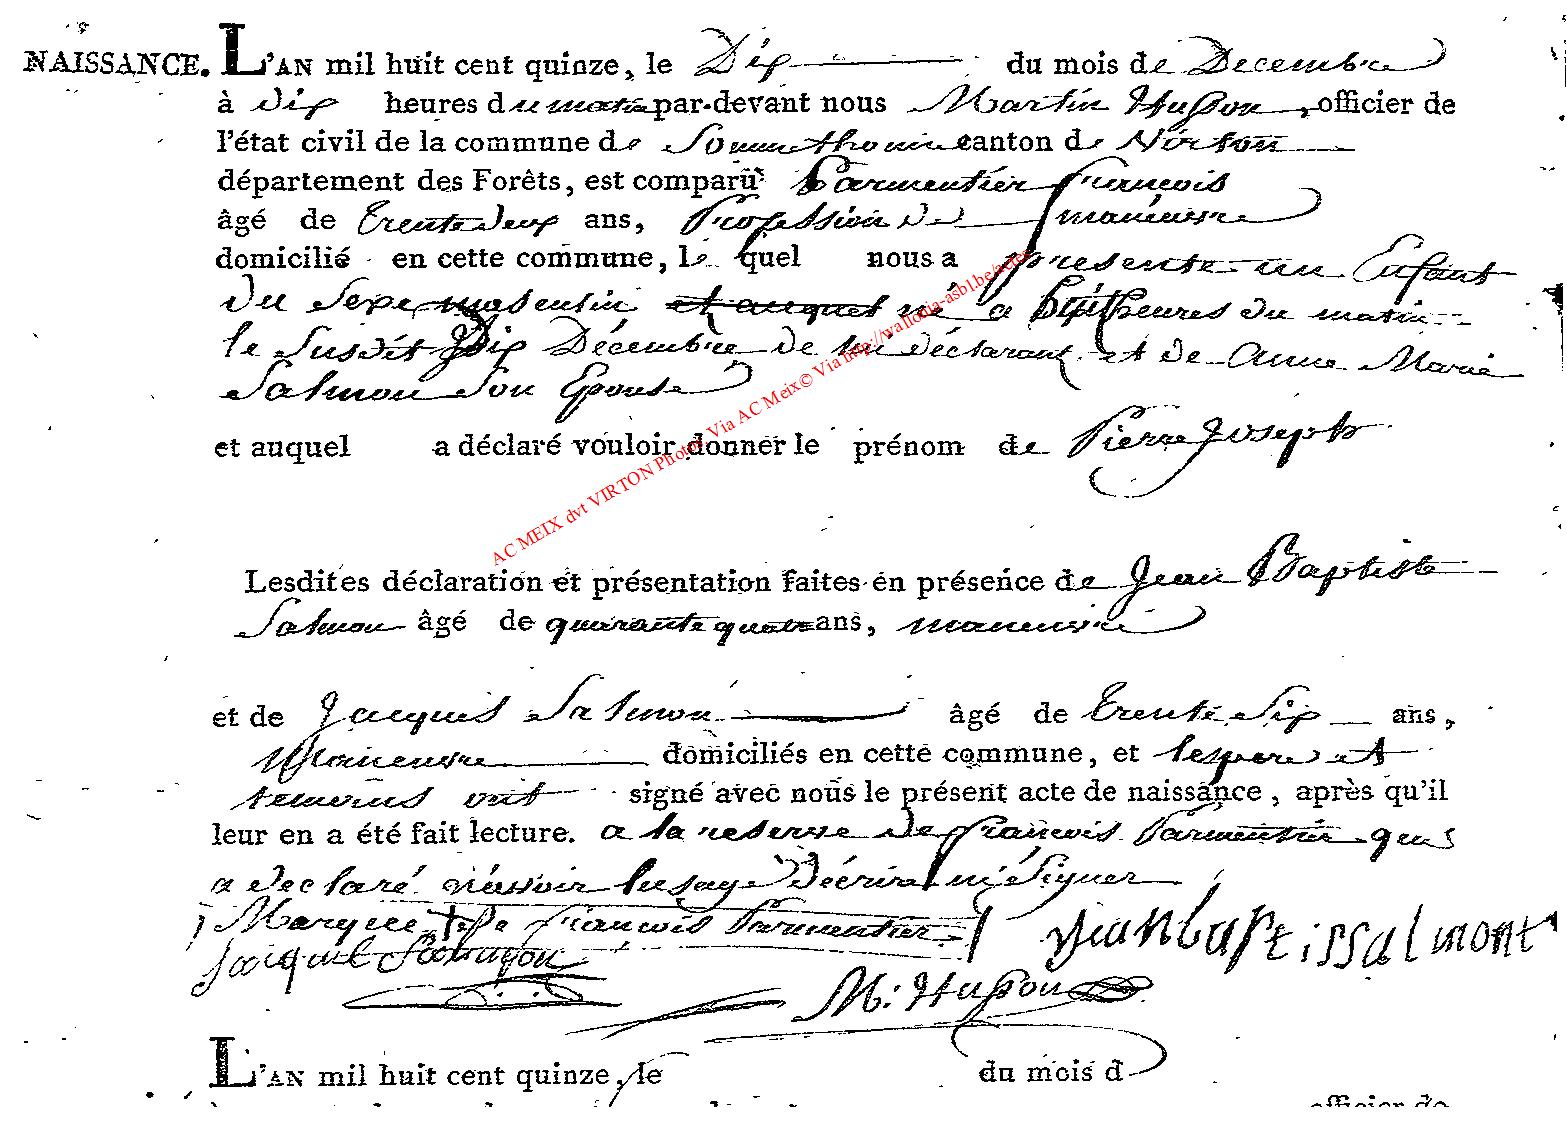 NAISSANCE. L'AN mil huit cent quinze, le Dix du mois de Decembre
à dix heures du matin par-devant nous Martin Husson, officier de
l'état civil de la commune de Sommethonne canton de Virton
département des Forêts, est comparu Parmentier françois
âgé de trente deux ans, Profession de maneuvre
domicilié en cette commune, le quel nous a presente un Enfant
du Sexe masculin et auquel né a huit heures du matin
le Susdit Dix Décembre de lui déclarant et de Anne Marie
Salmon Son Epouse
et auquel a déclaré vouloir donner le prénom de Pierre Joseph
AC MEIX dvt VIRTON Photos Via AC Meix© Via http://wallonia-asbl.be/actes
Lesdites déclaration et présentation faites en présence de Jean Baptiste
Salmon âgé de quarante quatre ans, maneuvre
et de Jacques Salmon âgé de trente Six ans,
Maneuvre domiciliés en cette commune, et les pere et
temoins ont signé avec nous le présent acte de naissance, après qu'il
leur en a été fait lecture. a la reserve de françois Parmentier qui
a declaré n'avoir lusage décrire ni Signer
Marque + de françois Parmentier
jacque Salmon jean bastissalmont
M: Husson
L'AN mil huit cent quinze, le du mois d
officier de